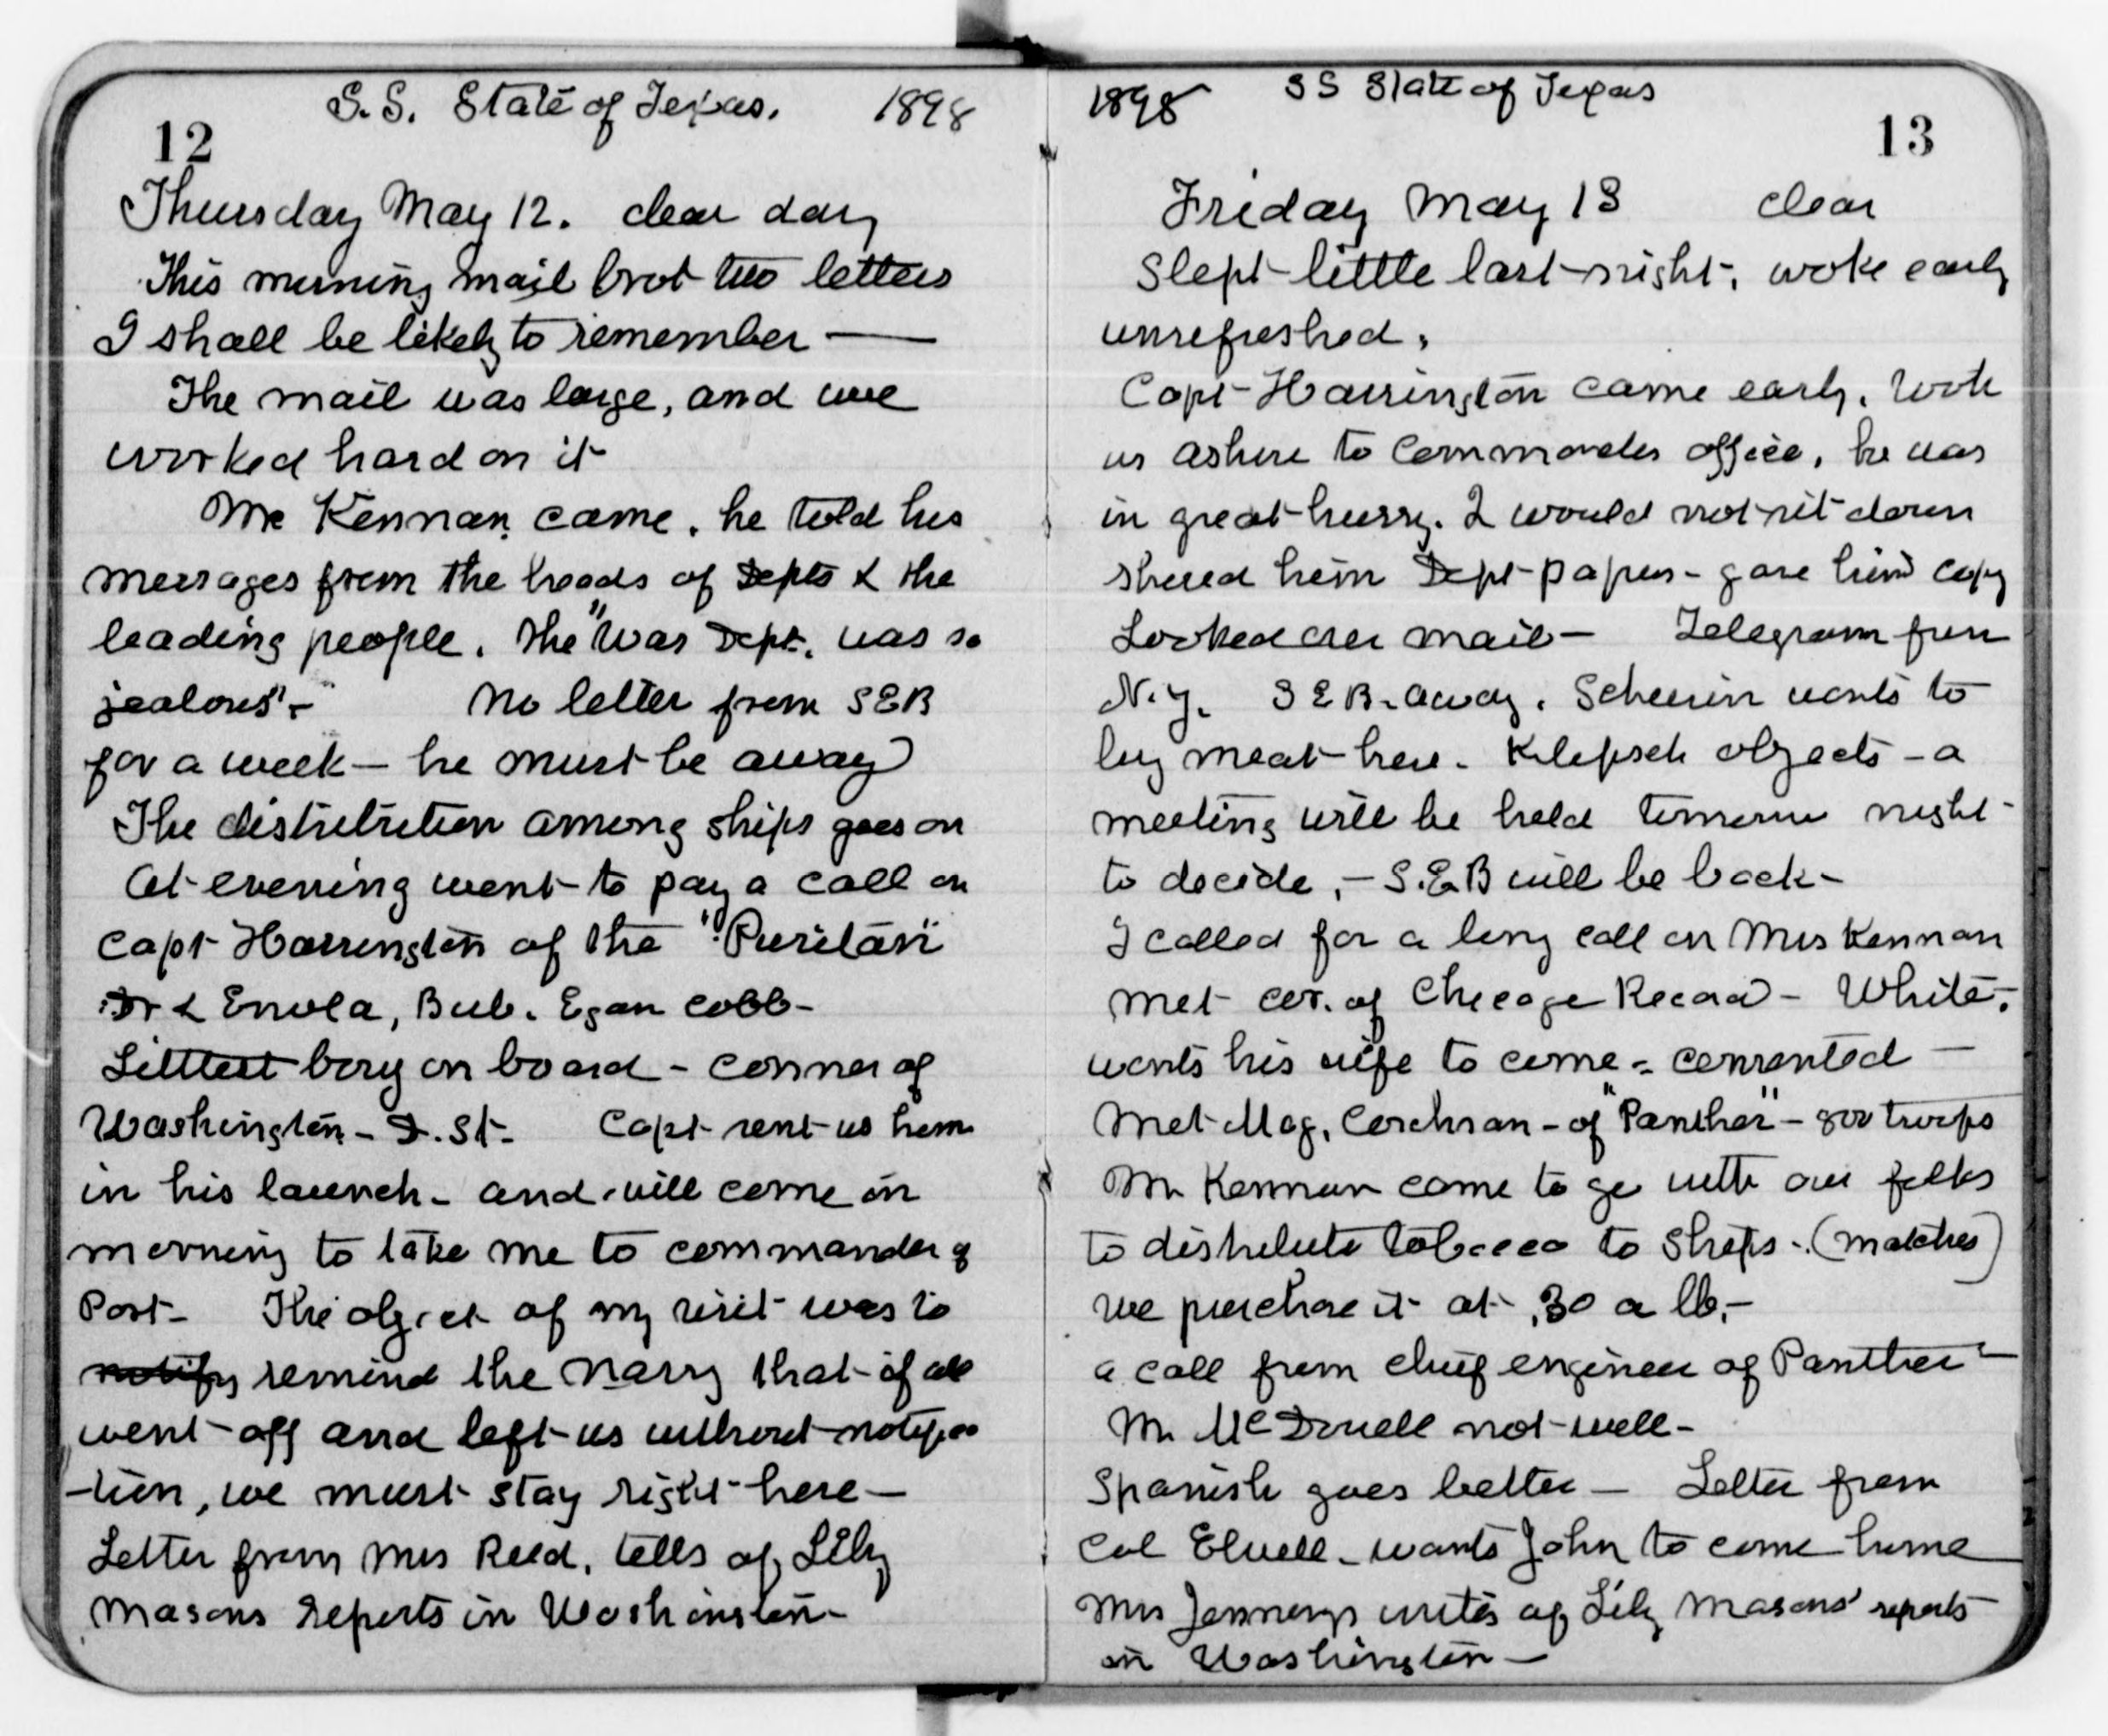 S.S. State of Texas. 1898
12
Thursday May 12. clear day
This morning mail brot two letters
I shall be likely to remember —
The mail was large, and we
worked hard on it
Mr Kennan came. he told his
messages from the heads of Depts & the
leading people. The "War Dept. was so
jealous" - No letter from SEB
for a week — he must be away
The distribution among ships goes on
At evening went to pay a call on
Capt Harrington of the "Puritan"
Dr & Enola, Bub. Egan Cobb -
Littlest boy on board - Conner of
Washington - I. St. Capt sent us home
in his launch - and will come in
morning to take me to commander of
Post - The object of my visit was to
notify remind the Navy that if all
went off and left us without notifica
-tion, we must stay right here —
Letter from Mrs Reed, tells of Lily
Masons reports in Washington -
1898 SS State of Texas
13
Friday May 13 clear
Slept little last night, woke early
unrefreshed.
Capt Harrington came early. took
us ashore to Commanders office, he was
in great hurry. I would not sit down
showed him Dept papers - gave him copy
Looked over mail - Telegram from
N.Y. SEB. away. Scheurin wants to
buy meat here. Klopsch objects - a
meeting will be held tomorrow night
to decide, - S.E.B will be back -
I called for a long call on Mrs Kennan
met cor. of Chicago Record - White,
wants his wife to come - consented —
Met Maj. Corchran - of "Panther" - 800 troops
Mr Kennan came to go with our folks
to distribute tobacco to Ships - (matches)
we purchase it at .30 a lb. -
a call from chief engineer of Panther -
Mr McDowell not well -
Spanish goes better — Letter from
Col Elwell - wants John to come home
Mrs Jennings writes of Lily Masons' reports
in Washington —